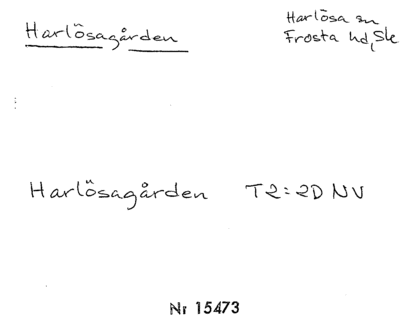 Harlösagården
Harlösa sn
Frosta hd, Sk
Harlösagården T2:2D NV
Nr 15473